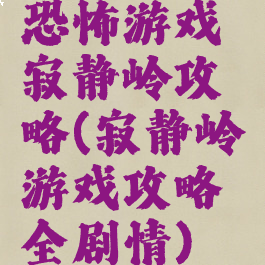 恐怖游戏
寂静岭攻
略(寂静岭
游戏攻略
全剧情)